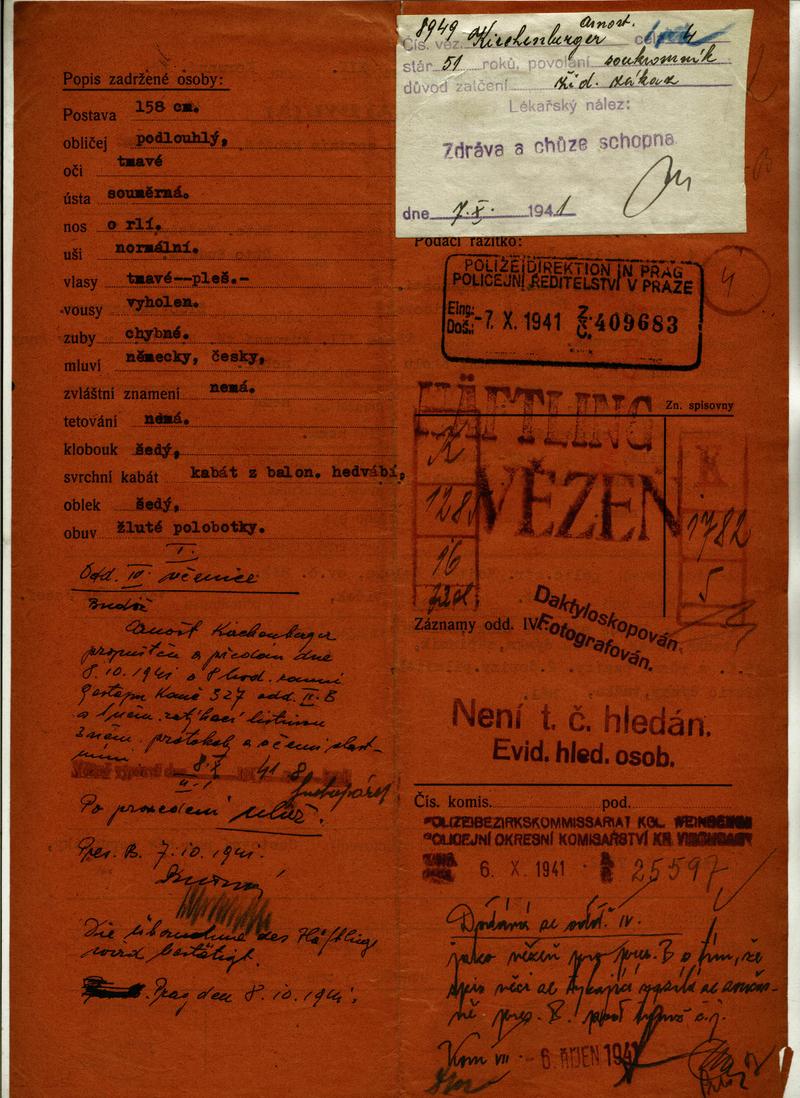 Popis zadržené osoby:
Postava 158 cm.
obličej podlouhlý,
oči tmavé
ústa souměrná.
nos orlí.
uši normální.
vlasy tmavé--pleš.-
vousy vyholen.
zuby chybné.
mluví německy, česky,
zvláštní znamení nemá.
tetování nemá.
klobouk šedý,
svrchní kabát kabát z balon. hedvábí,
oblek šedý,
obuv žluté polobotky.
I.
Odd. IV. věznice
Arnošt Kirchenberger
propuštěn a předán dne
8.10.1941 o 8 hod. ranní
Gestapu Kanc 327 odd. II-B
protokoly a
8.X. 41 8
II.
Po provedení ulož.
Pres. B. 7.10.1941.
Die Übernahme des Häftlings
wird bestätigt.
Prag den 8.10.1941.
8949 Arnost.
Čís. věz. Kirchenberger cela 4
stár 51 roků, povolání soukromník
důvod zatčení žid. zákaz
Lékařský nález:
Zdráva a chůze schopna
dne 7.X. 1941
Podací razítko:
POLIZEIDIREKTION IN PRAG
POLICEJNÍ ŘEDITELSTVÍ V PRAZE
Eing.:
Doš.: -7. X. 1941 Z. Č. 409683
4
HÄFTLING
Zn. spisovny
VĚZEŇ
K
128
16
K
1782
5
Záznamy odd. IV.
Daktyloskopován.
Fotografován.
Není t. č. hledán.
Evid. hled. osob.
Čís. komis. pod.
POLIZEIBEZIRKSKOMMISSARIAT KGL. WEINBERGE
POLICEJNÍ OKRESNÍ KOMISAŘSTVÍ KR. VINOHRADY
6. X. 1941 25597
Dodává se odd. IV.
jako vězeň pro pres. B s tím, že
spis věci se týkající zasílá se součas-
ně pres. B. pod týmž č.j.
Kom VII - 6. ŘÍJEN 1941